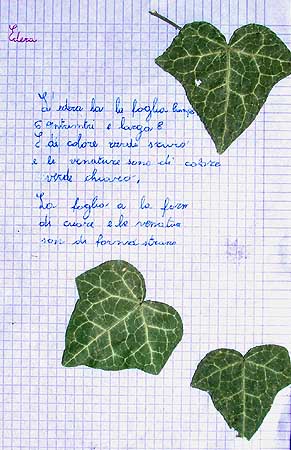 Edera
La edera ha la foglia lunga
6 centimetri e larga 8
È di colore verde scuro
e le venature sono di colore
verde chiaro.
La foglia a la form
di cuore e le venature
son di forma strana